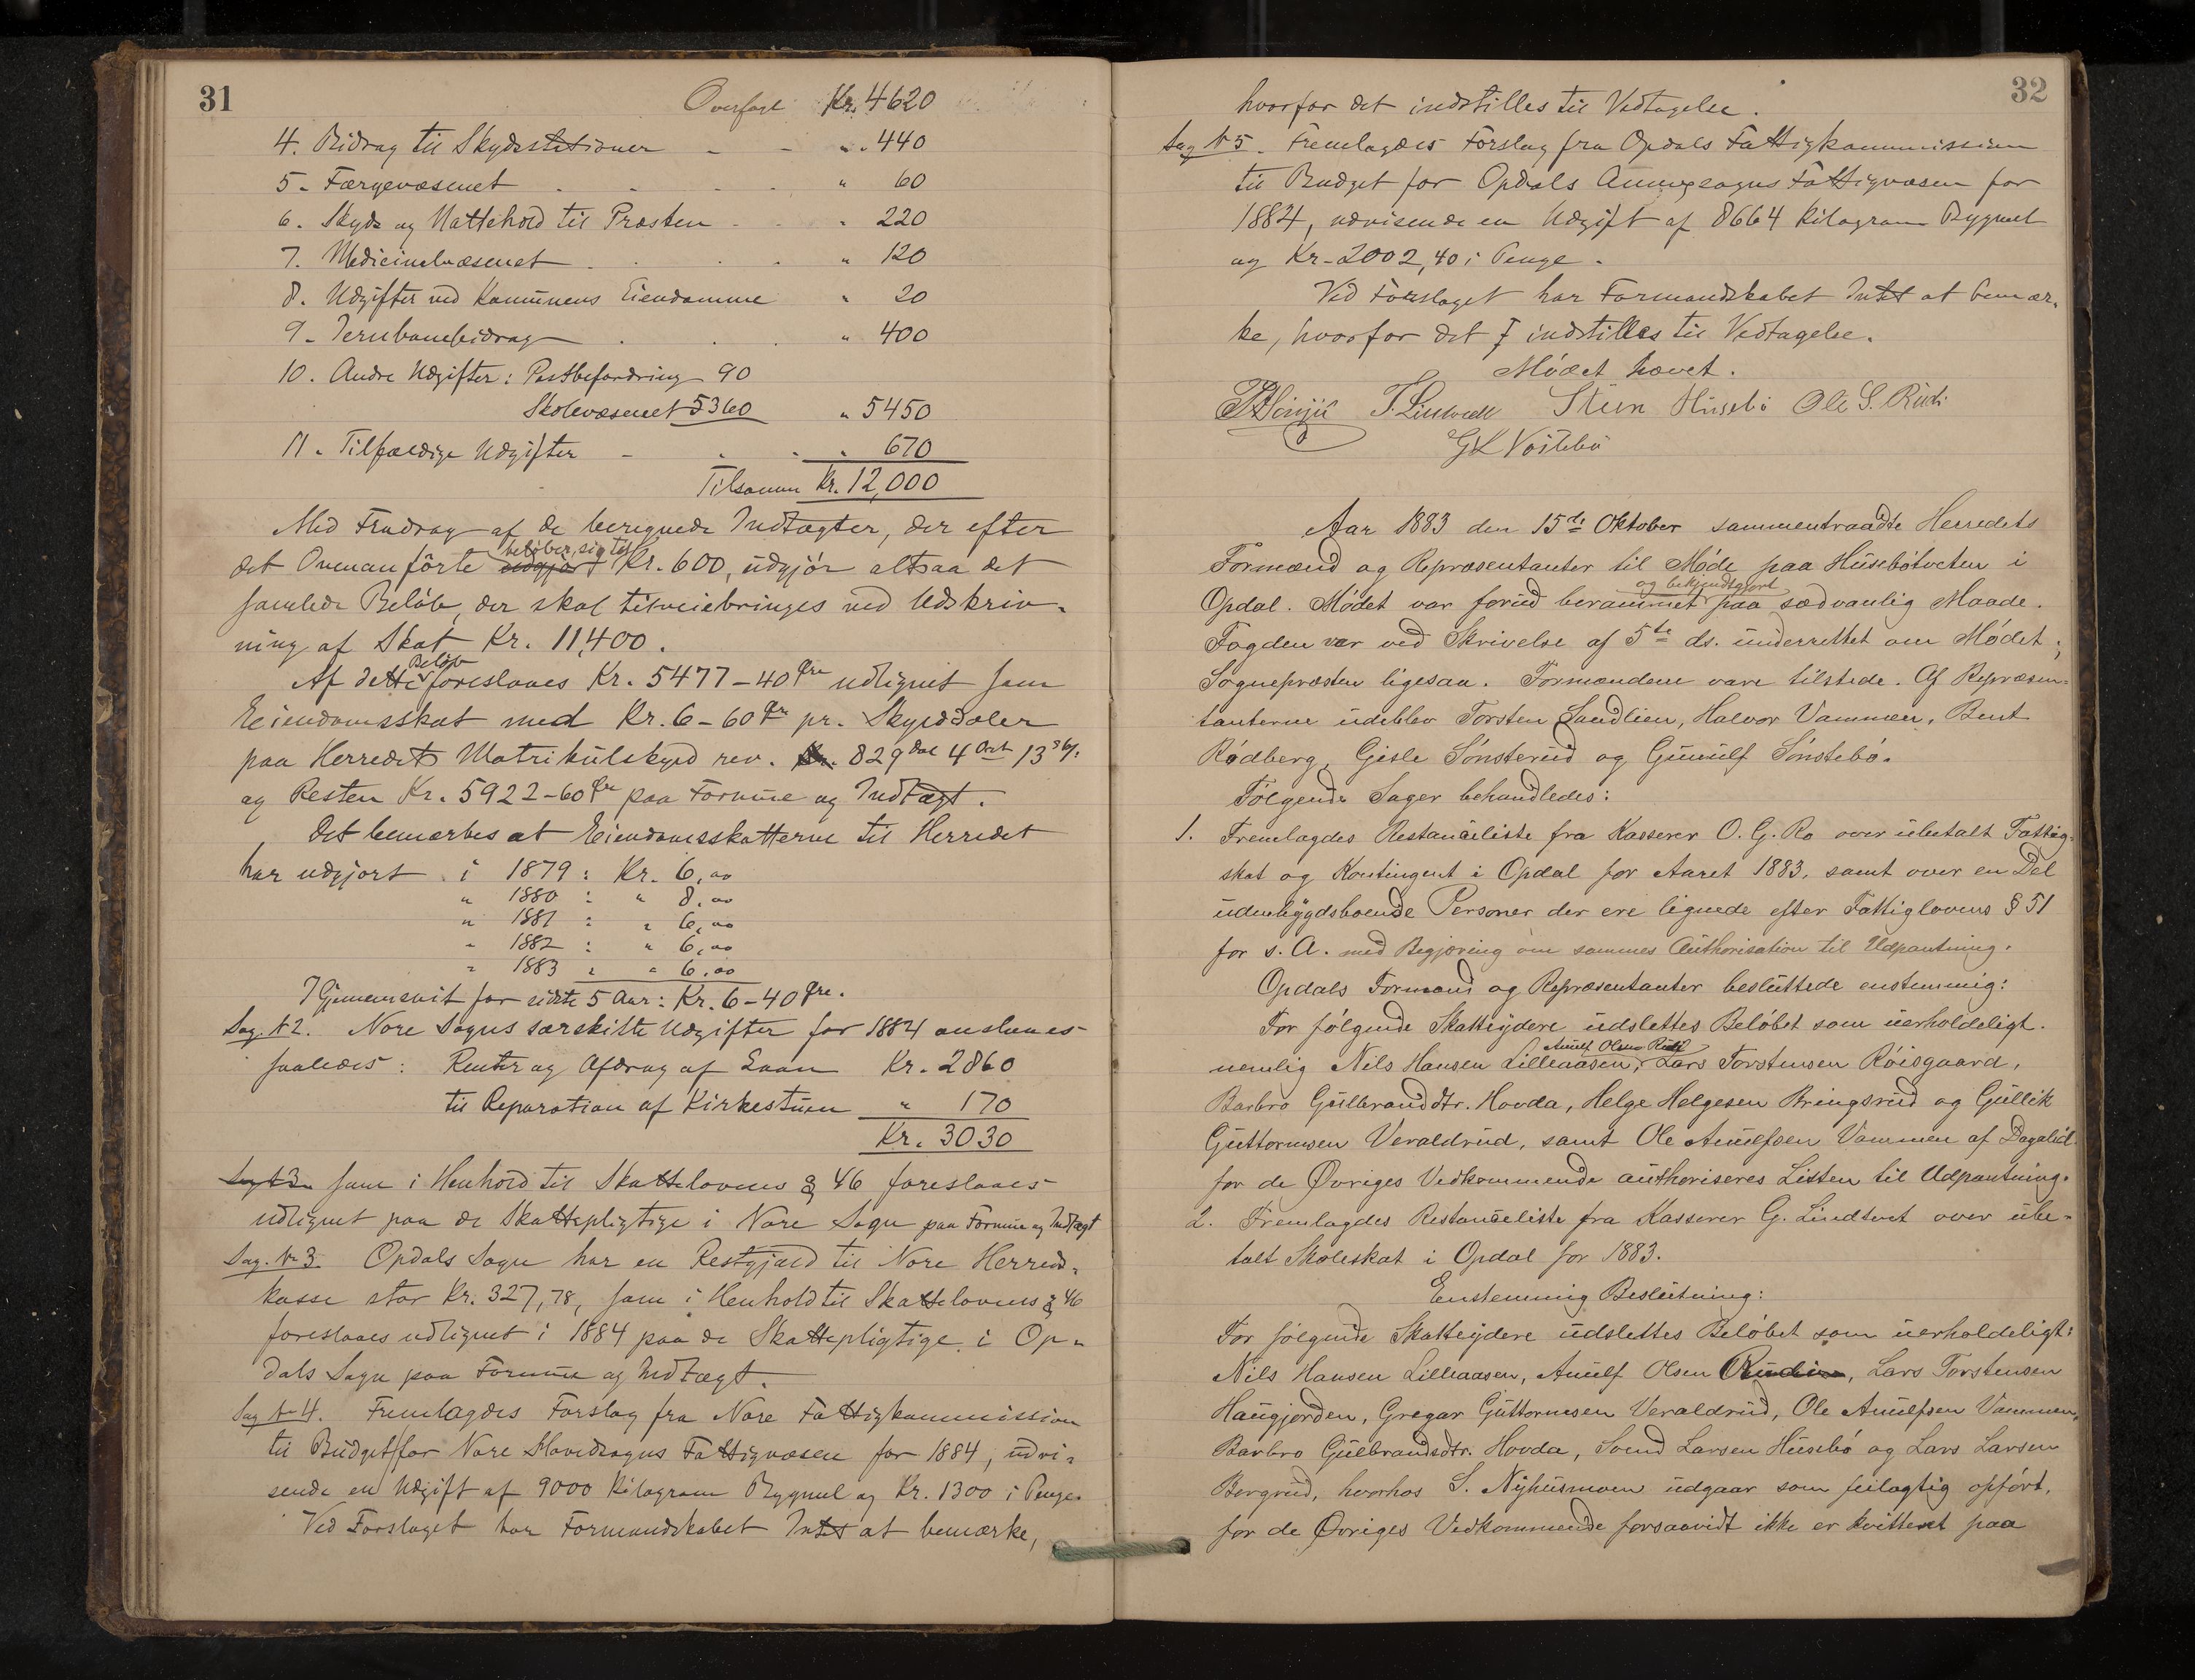 31
Overført Kr. 4620
4. Bidrag til Skydsstationer - - „ 440
5. Færgevæsenet . - . . „ 60
6. Skyds og Nattehold til Præsten - . „ 220
7. Medicinalvæsenet . . . „ 120
8. Udgifter ved Kommunens Eiendomme „ 20
9. Jernbanebidrag . . . „ 400
10. Andre Udgifter: Postbefordring 90
Skolevæsenet 5360 „ 5450
11. Tilfældige Udgifter - . . „ 670
Tilsamm Kr. 12,000
Med Fradrag af de beregnede Indtægter, der efter
beløber sig til
det Ovenanførte udgjør Kr. 600, udgjør altsaa det
samlede Beløb, der skal tilveiebringes ved Udskriv-
ning af Skat Kr. 11,400.
Beløb
Af dette foreslaaes Kr. 5477-40 Øre udlignet som
Eiendomsskat med Kr. 6-60 Øre pr. Skylddaler
paa Herredets Matrikulskyld rev. Kr. 829 Dal 4 Ort 13 ß.
og Resten Kr. 5922-60 Øre paa Formue og Indtægt.
Det bemærkes at Eiendomsskatterne til Herredet
har udgjort i 1879 : Kr. 6,00
„ 1880 : „ 8,00
„ 1881 : „ 6,00
„ 1882 : „ 6,00
„ 1883 : „ 6,00
I Gjennemsnit for sidste 5 Aar: Kr. 6-40 Øre.
Sag. N 2. Nore Sogns særskilte Udgifter for 1884 ansluues
saaledes : Renter og Afdrag af Laan Kr. 2860
til Reparation af Kirkestuen „ 170
Kr. 3030
Sag N 3 som i Henhold til Skattelovens § 46 foreslaaes
udlignet paa de Skattepligtige i Nore Sogn paa Formue og Indtægt
Sag. N 3. Opdals Sogn har en Restgjæld til Nore Herreds-
kasse stor Kr. 327,78, som i Henhold til Skattelovens § 46
foreslaaes udlignet i 1884 paa de Skattepligtige i Op-
dals Sogn paa Formue og Indtægt.
Sag N 4. Fremlagdes Forslag fra Nore Fattigkommission
til Budget for Nore Hovedsogns Fattigvæsen for 1884, udvi-
sende en Udgift af 9000 Kilogram Bygmel og Kr. 1300 i Penge.
Ved Forslaget har Formandskabet Intet at bemærke,
32
hvorfor det indstilles til Vedtagelse.
Sag N 5. Fremlagdes Forslag fra Opdals Fattigkommission
til Budget for Opdals Annexsogns Fattigvæsen for
1884, udvisende en Udgift af 8664 Kilogram Bygmel
og Kr. 2002,40 i Penge.
Ved Forslaget har Formandskabet Intet at bemær-
ke, hvorfor det I indstilles til Vedtagelse.
Mødet hævet.
T. Lintvedt Steen Husebø Ole S. Rudi
GK Nørstebø
Aar 1883 den 15de Oktober sammentraadte Herredets
Formænd og Repræsentanter til Møde paa Husebøtveten i
og bekjendtgjort
Opdal. Mødet var forud berammet paa sædvanlig Maade.
Fogden var ved Skrivelse af 5te ds. underrettet om Mødet;
Sognepræsten ligesaa. Formændene vare tilstede. Af Repræsen-
tanterne udeblev Torsten Sandlien, Halvor Vammen, Bent
Rødberg, Gisle Sønsterud og Gunulf Sønstebø.
Følgende Sager behandledes:
1. Fremlagdes Restanceliste fra Kasserer O. G. Ro over ubetalt Fattig-
skat og Kontingent i Opdal for Aaret 1883, samt over en Del
udenbygdsboende Personer der ere lignede efter Fattiglovens § 51
for s. A. med Begjæring om sammes Authorisation til Udpantning.
Opdals Formænd og Repræsentanter besluttede enstemmig:
For følgende Skatteydere udslettes Beløbet som uerholdeligt.
Anulf Olsen Rudi
nemlig Nils Hansen Lilleaasen, Lars Torstensen Røisgaard,
Barbro Gulbrandsdtr. Hovda, Helge Helgesen Bringsrud og Gullik
Guttormsen Veraldrud, samt Ole Anulfsen Vammen af Dagalid
for de Øvriges Vedkommende authoriseres Listen til Udpantning.
2. Fremlagdes Restanceliste fra Kasserer G. Lindtvet over ube-
talt Skoleskat i Opdal for 1883.
Enstemmig Beslutning:
For følgende Skatteydere udslettes Beløbet som uerholdeligt:
Nils Hansen Lilleaasen, Anulf Olsen Rudi, Lars Torstensen
Haugjorden, Gregar Guttormsen Veraldrud, Ole Anulfsen Vammen,
Barbro Gulbrandsdtr. Hovda, Svend Larsen Husebø og Lars Larsen
Bergrud, hvorhos S. Nyhusmoen udgaar som feilagtig opført,
for de Øvriges Vedkommende forsaavidt ikke er kvitteret paa